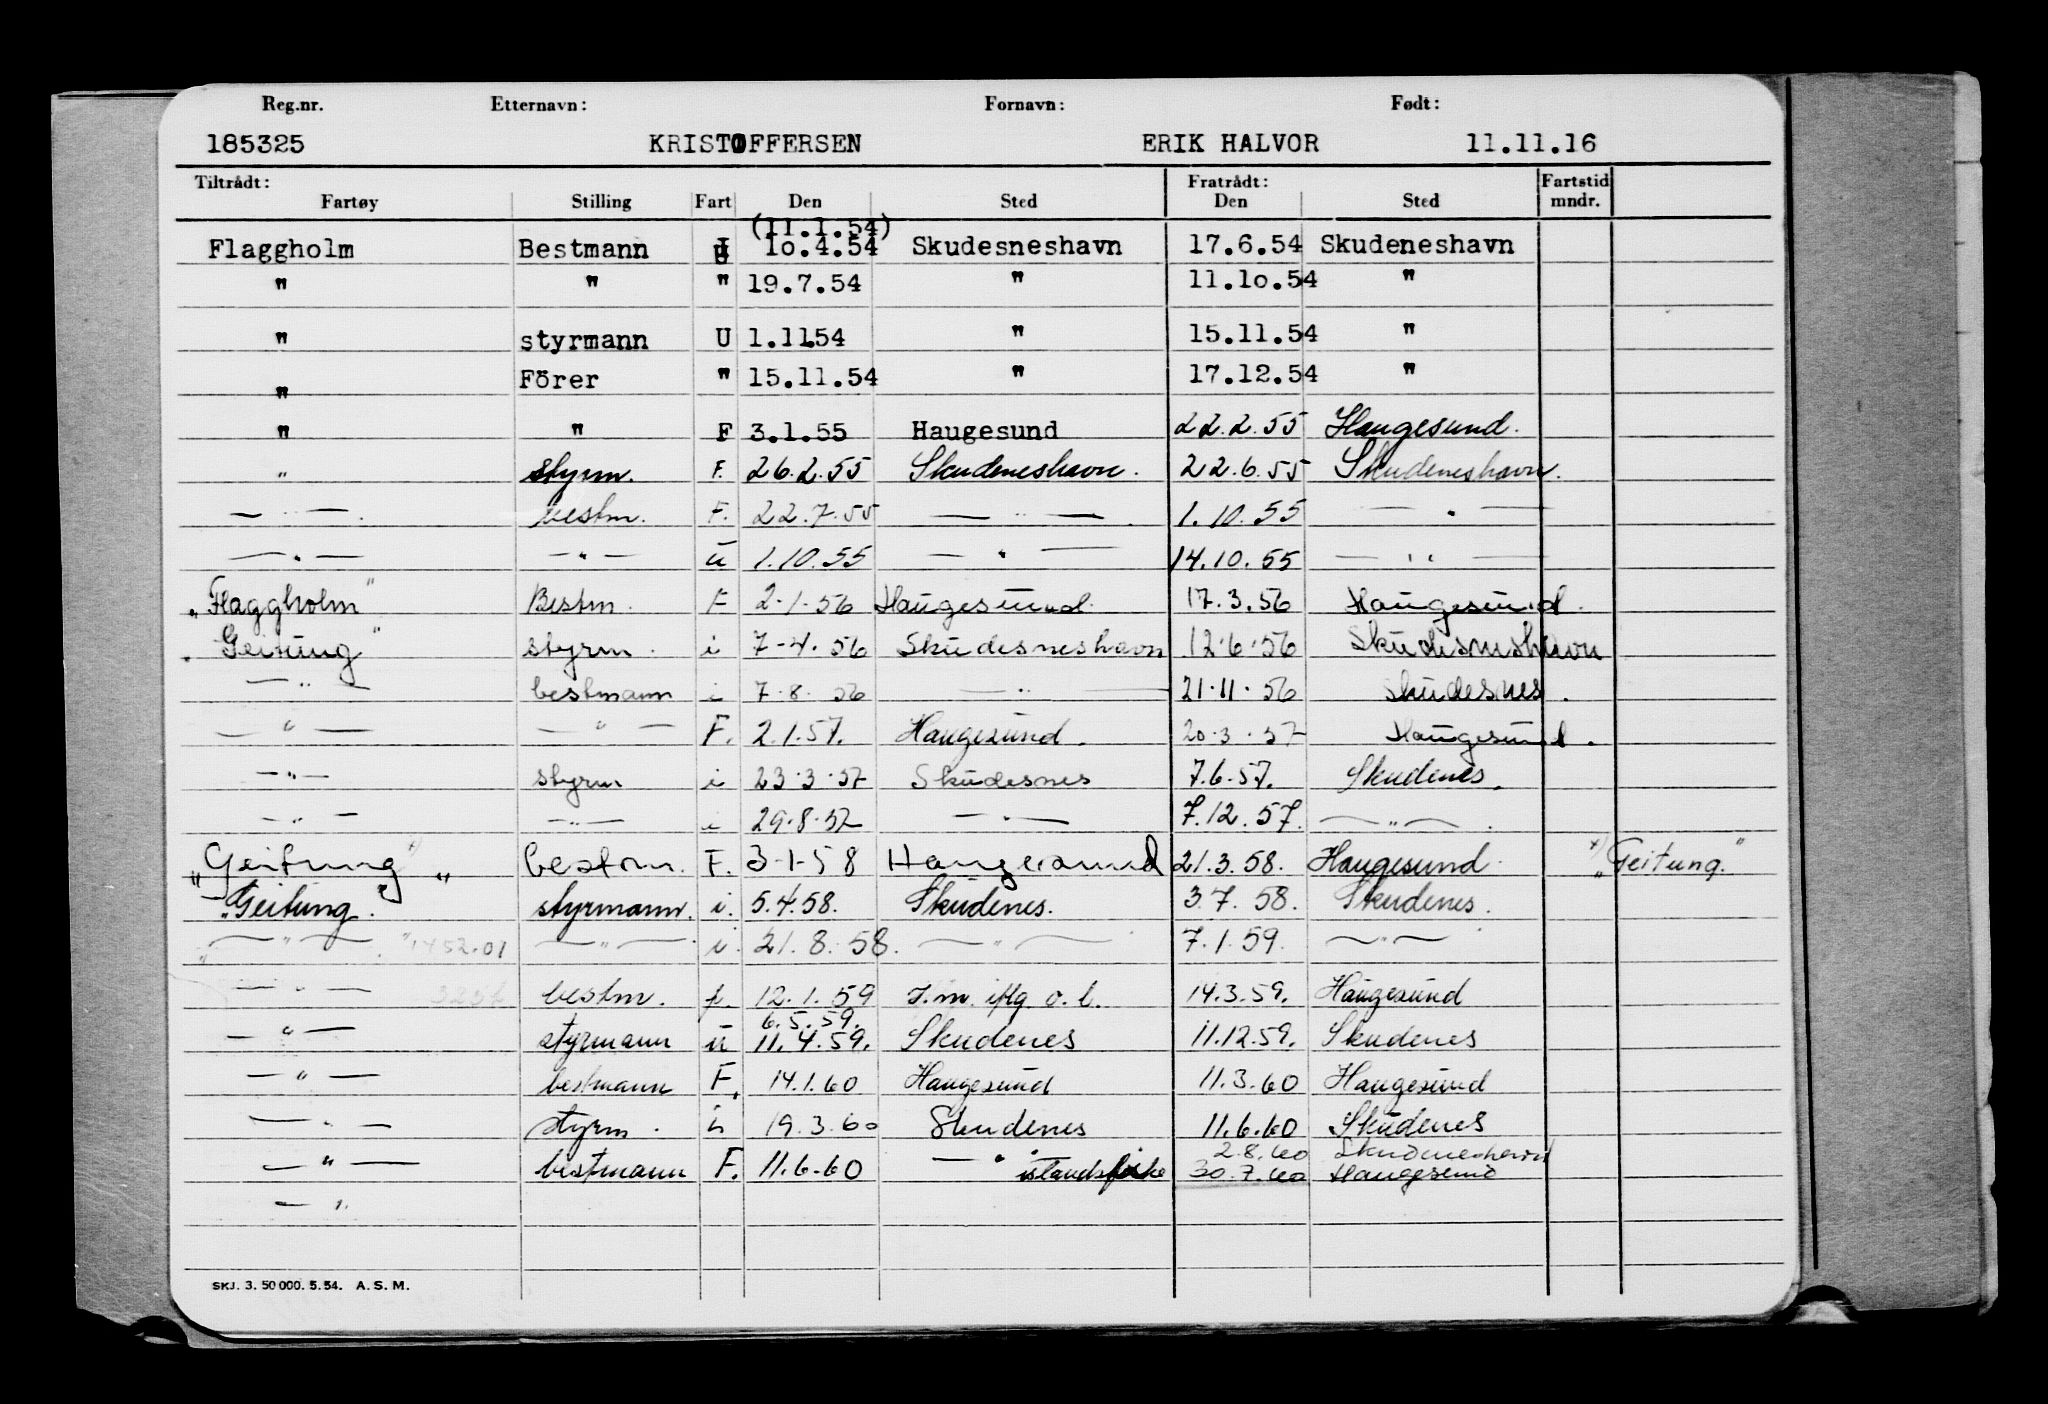 Reg.nr. Etternavn: Fornavn: Født:
185325 KRISTOFFERSEN ERIK HALVOR 11.11.16
Tiltrådt: Fratrådt: Fartstid
Fartøy Stilling Fart Den Sted Den Sted mndr.
(11.1.54)
Flaggholm Bestmann 10.4.54 Skudesneshavn 17.6.54 Skudeneshavn
" " " 19.7.54 " 11.10.54 "
" styrmann U 1.11.54 " 15.11.54 "
" Förer " 15.11.54 " 17.12.54 "
" " F 3.1.55 Haugesund 22.2.55 Haugesund.
" styrm. F. 26.2.55 Skudeneshavn. 22.6.55 Skudeneshavn.
— " — bestm. F. 22.7.55 — " — 1.10.55 — " —
— " — — " — u 1.10.55 — " — 14.10.55 — " —
"Flaggholm" Bestm. F 2.1.56 Haugesund. 17.3.56 Haugesund.
"Geitung" styrm. i 7-4.56 Skudesneshavn 12.6.56 Skudesneshavn
— " — bestmann i 7.8.56 — " — 21.11.56 Skudesnes.
— " — — " — F. 2.1.57. Haugesund. 20.3.57 Haugesund.
— " — styrm i 23.3.57 Skudesnes 7.6.57. Skudenes.
— " — — " — i 29.8.57 — " — 7.12.57. — " — .
"Geitung" +) " bestm. F. 3-1-58 Haugesund 21.3.58. Haugesund. +) "Geitung."
"Geitung". styrmann. i. 5.4.58. Skudenes. 3.7.58. Skudenes.
" — " — . " 1452.01 — " — i. 21.8.58. — " — 7.1.59. — " —
— " — bestm. f. 12.1.59 I.m. iflg o.l. 14.3.59. Haugesund
6.5.59.
— " — styrmann u 11.4.59. Skudenes 11.12.59. Skudenes
— " — bestmann F. 14.1.60 Haugesund 11.3.60 Haugesund
— " — styrm. 19.3.60 Skudenes 11.6.60 Skudenes
2.8.60 Skudneshavn
— " — bestmann F. 11.6.60 — " — islandsfiske 30.7.60 Haugesund
— " .
SKJ. 3. 50 000. 5.54. A. S. M.